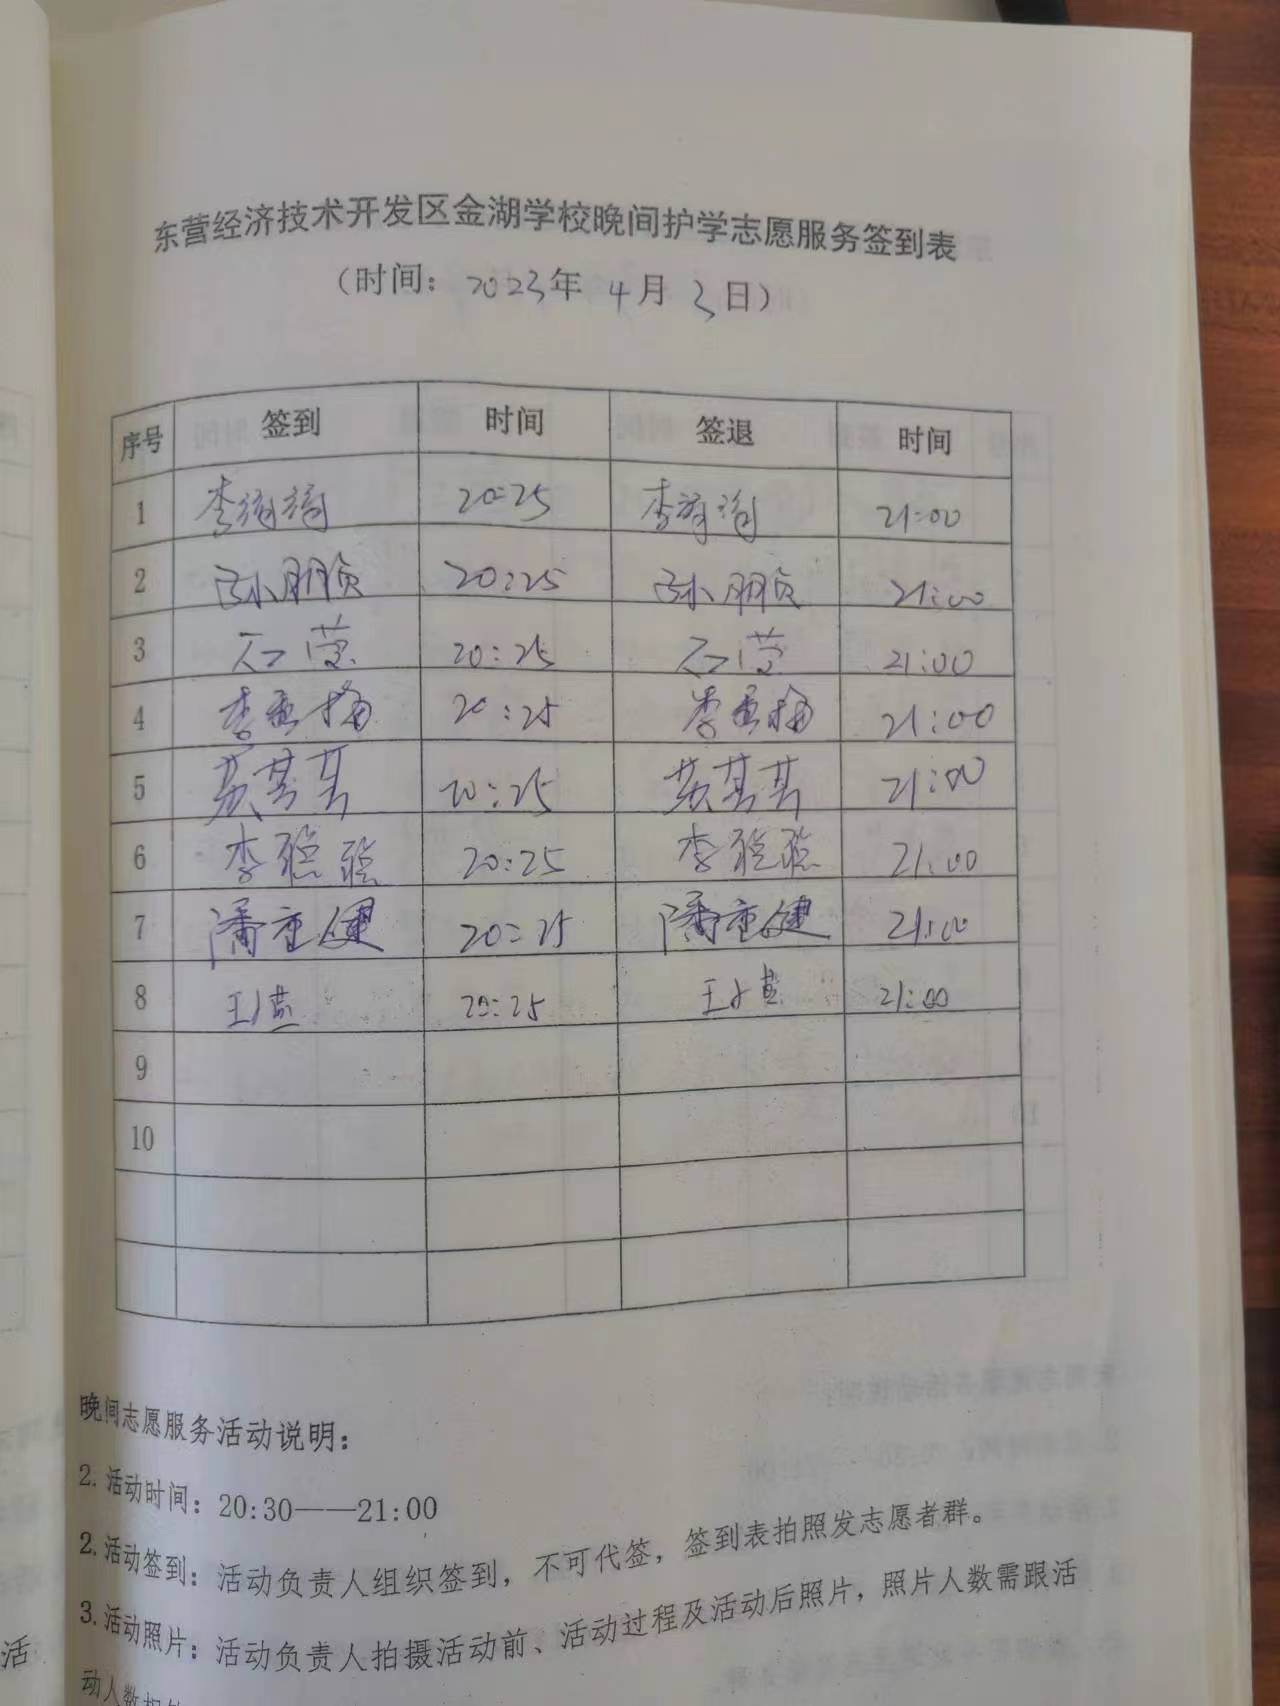 东营经济技术开发区金湖学校晚间护学志愿服务签到表
（时间：2023年 4月 3日）
序号 签到 时间 签退 时间
1 李 20:25 李 21:00
2 孙朋贞 20:25 孙朋贞 21:00
3 石莹 20:25 石莹 21:00
4 李亚梅 20:25 李亚梅 21:00
5 苏其其 20:25 苏其其 21:00
6 李聪聪 20:25 李聪聪 21:00
7 潘重健 20:25 潘重健 21:00
8 王 20:25 王 21:00
9
10
晚间志愿服务活动说明：
2. 活动时间：20:30——21:00
2. 活动签到：活动负责人组织签到，不可代签，签到表拍照发志愿者群。
3. 活动照片：活动负责人拍摄活动前、活动过程及活动后照片，照片人数需跟活
动人数
活